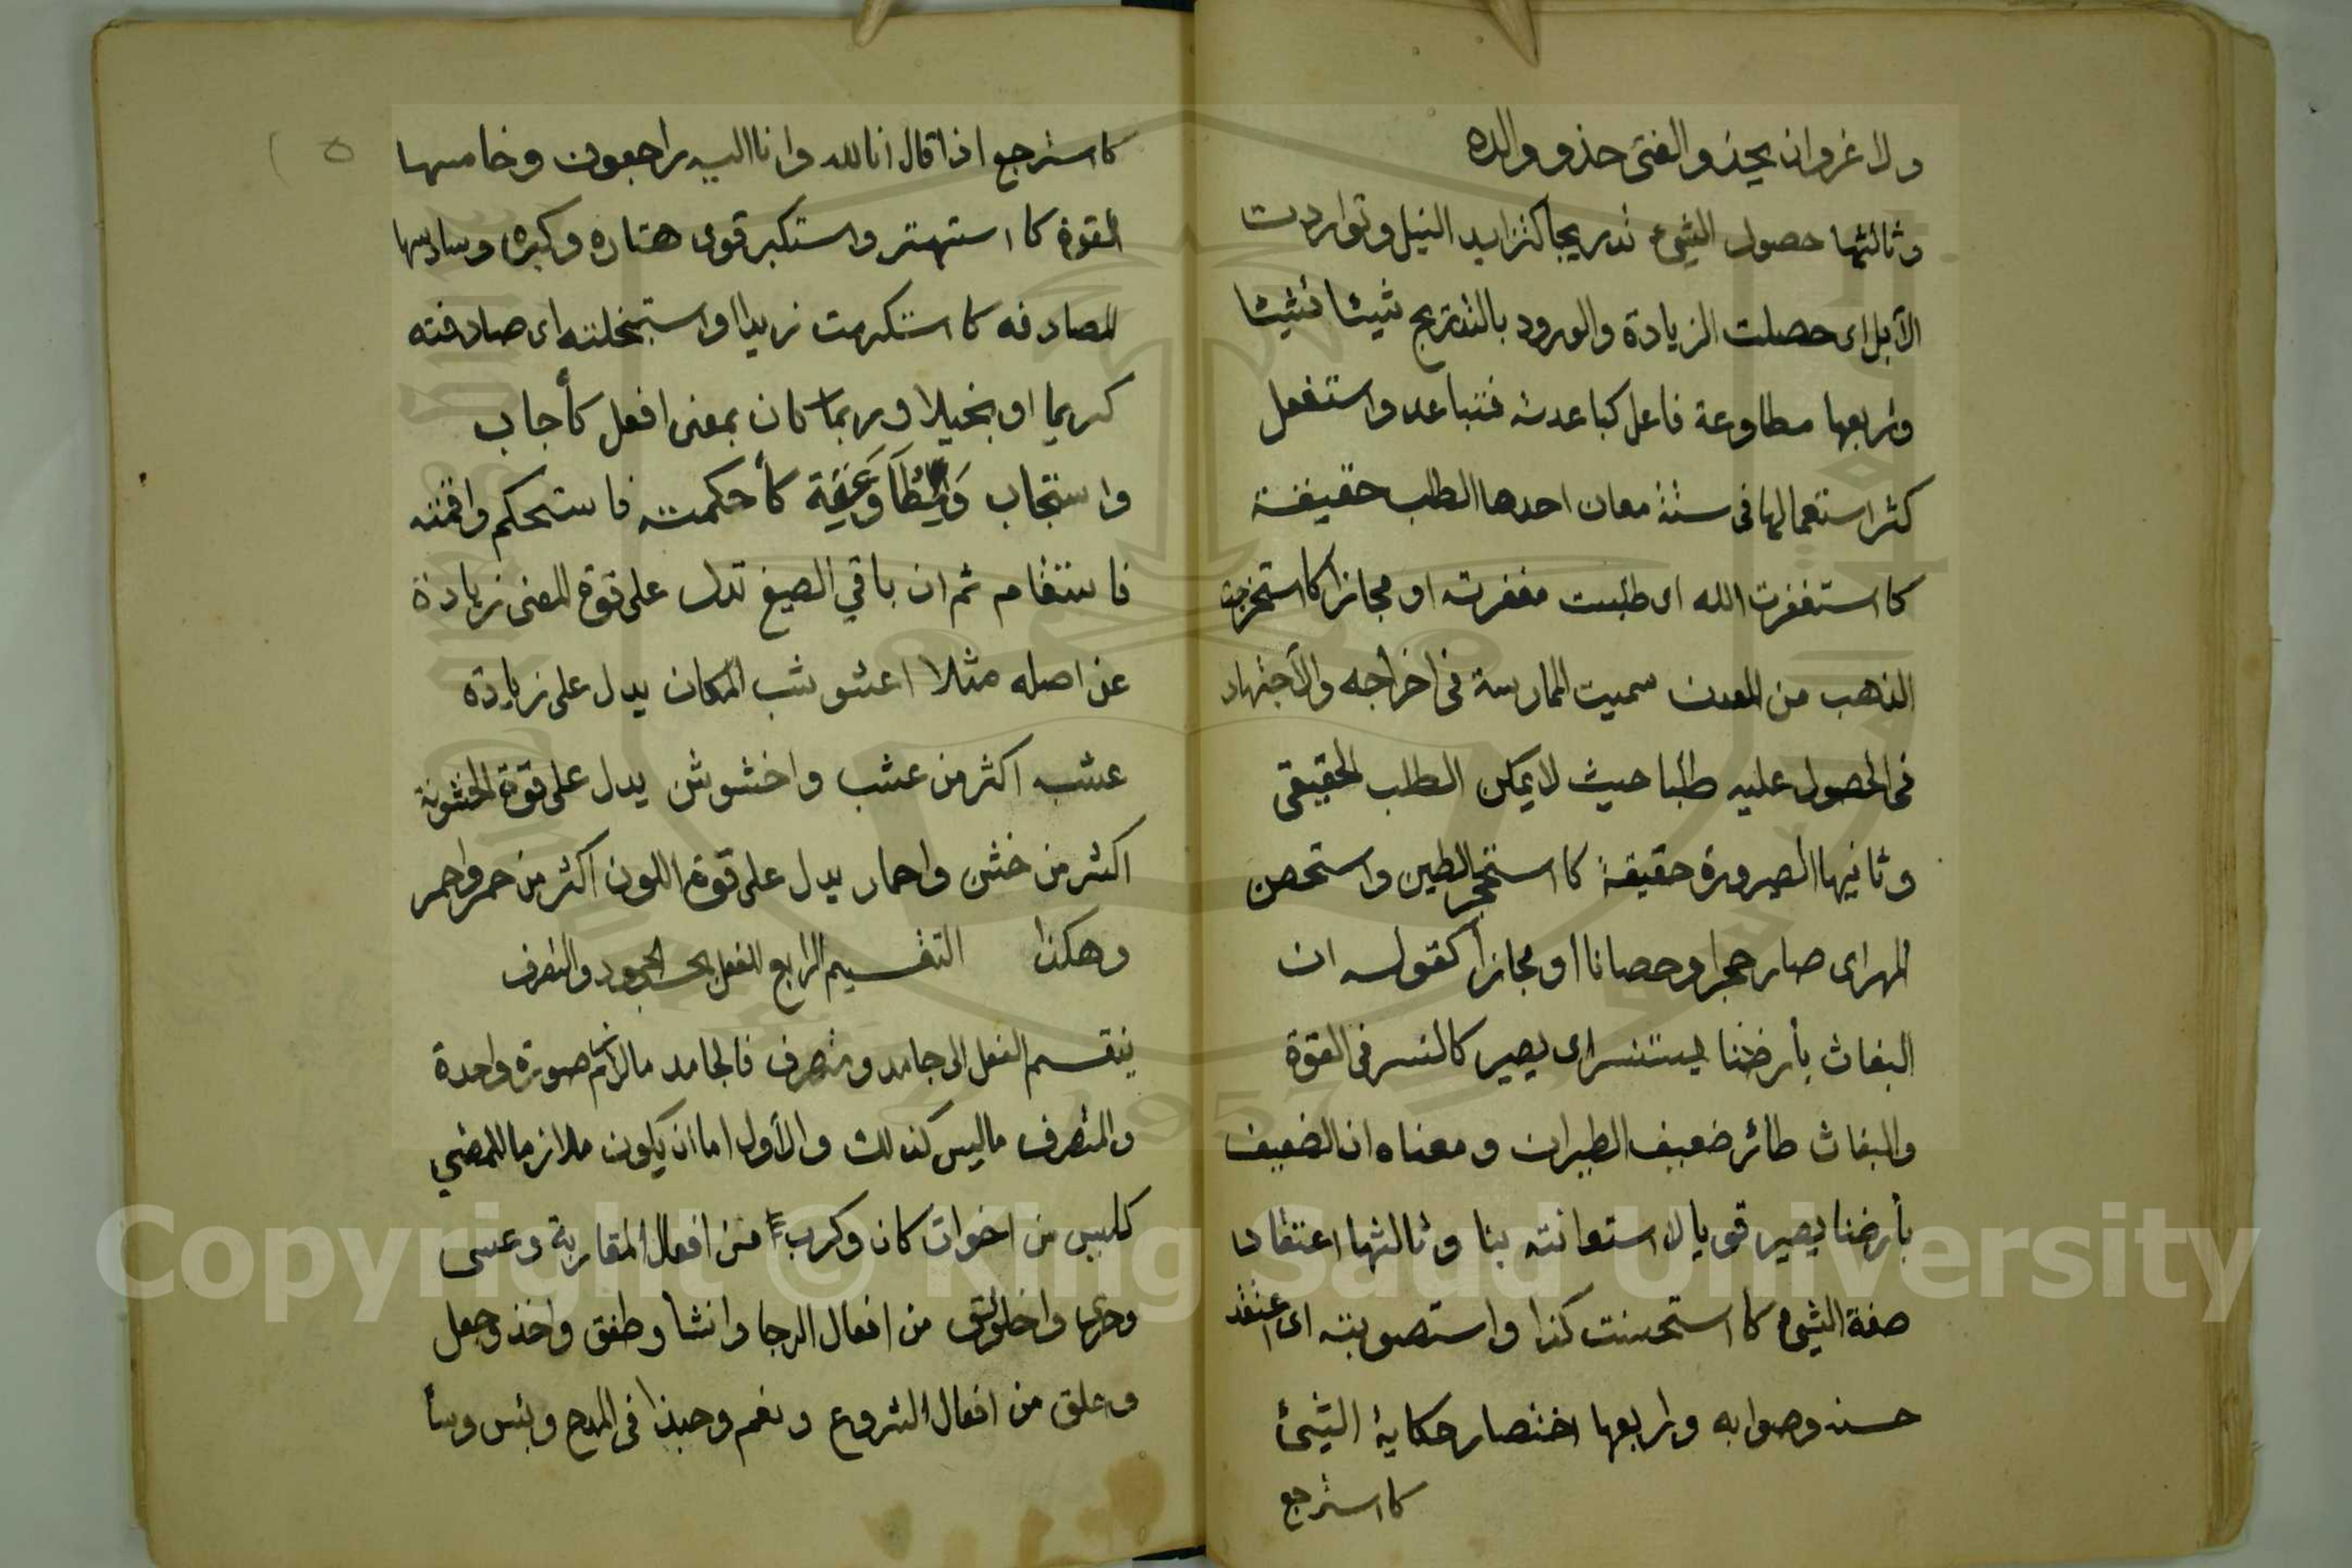 ولا غرو ان يحذو الفتى حذو والده
وثالثها حصول الشيء تدريجا كتزايد النيل وتواردت
الأبل اى حصلت الزيادة والورود بالتدريج شيئا فشيئا
ورابعها مطاوعة فاعل كباعدته فتباعد واستفعل
كثر استعمالها فى ستة معان احدها الطلب حقيقة
كاستغفرت الله اى طلبت مغفرته او مجازا كاستخرجت
الذهب من المعدن سميت الممارسة فى اخراجه والأجتهاد
فى الحصول عليه طلبا حيث لا يمكن الطلب الحقيقى
وثانيها الصيرورة حقيقة كاستحجر الطين واستحصن
المهر اى صار حجرا وحصانا او مجازا كقوله ان
البغاث بأرضنا يستنسر اى يصير كالنسر فى القوة
والبغاث طائر ضعيف الطيران ومعناه ان الضعيف
بأرضنا يصير قويا لاستعانته بنا وثالثها اعتقاد
صفة الشيء كاستحسنت كذا واستصوبته اى اعتقد
حسنه وصوابه ورابعها اختصار حكاية الشيئ
كاسترجع
كاسترجع اذا قال انا لله وانا اليه راجعون وخامسها
القوة كاستهتر واستكبر قوى هتاره وكبره وسادسها
المصادفه كاستكرمت زيدا او استبخلته اى صادفته
كريما او بخيلا وربما كان بمعنى افعل كأجاب
واستجاب كأحكمته فاستحكم واقمته
فاستقام ثم ان باقي الصيغ تدل على قوة المعنى زيادة
عن اصله مثلا اعشوشب المكان يدل على زيادة
عشبه اكثر من عشب واخشوشن يدل على قوة الخشونة
اكثر من خشن واحمار يدل على قوة اللون اكثر من حمر واحمر
وهكذا التقسيم الرابع للفعل بحسب الجمود والتصرف
ينقسم الفعل الى جامد ومتصرف فالجامد مالازم صورة واحدة
والمتصرف ماليس كذلك والأول اما ان يكون ملازما للمضي
كليس من اخوات كان وكرب من افعال المقاربة وعسى
وحرى واخلولق من افعال الرجا وانشأ وطفق واخذ وجعل
وعلق من افعال الشروع ونعم وحبذا فى المدح وبئس وساء
٥
Copyright © King Saud University
1957